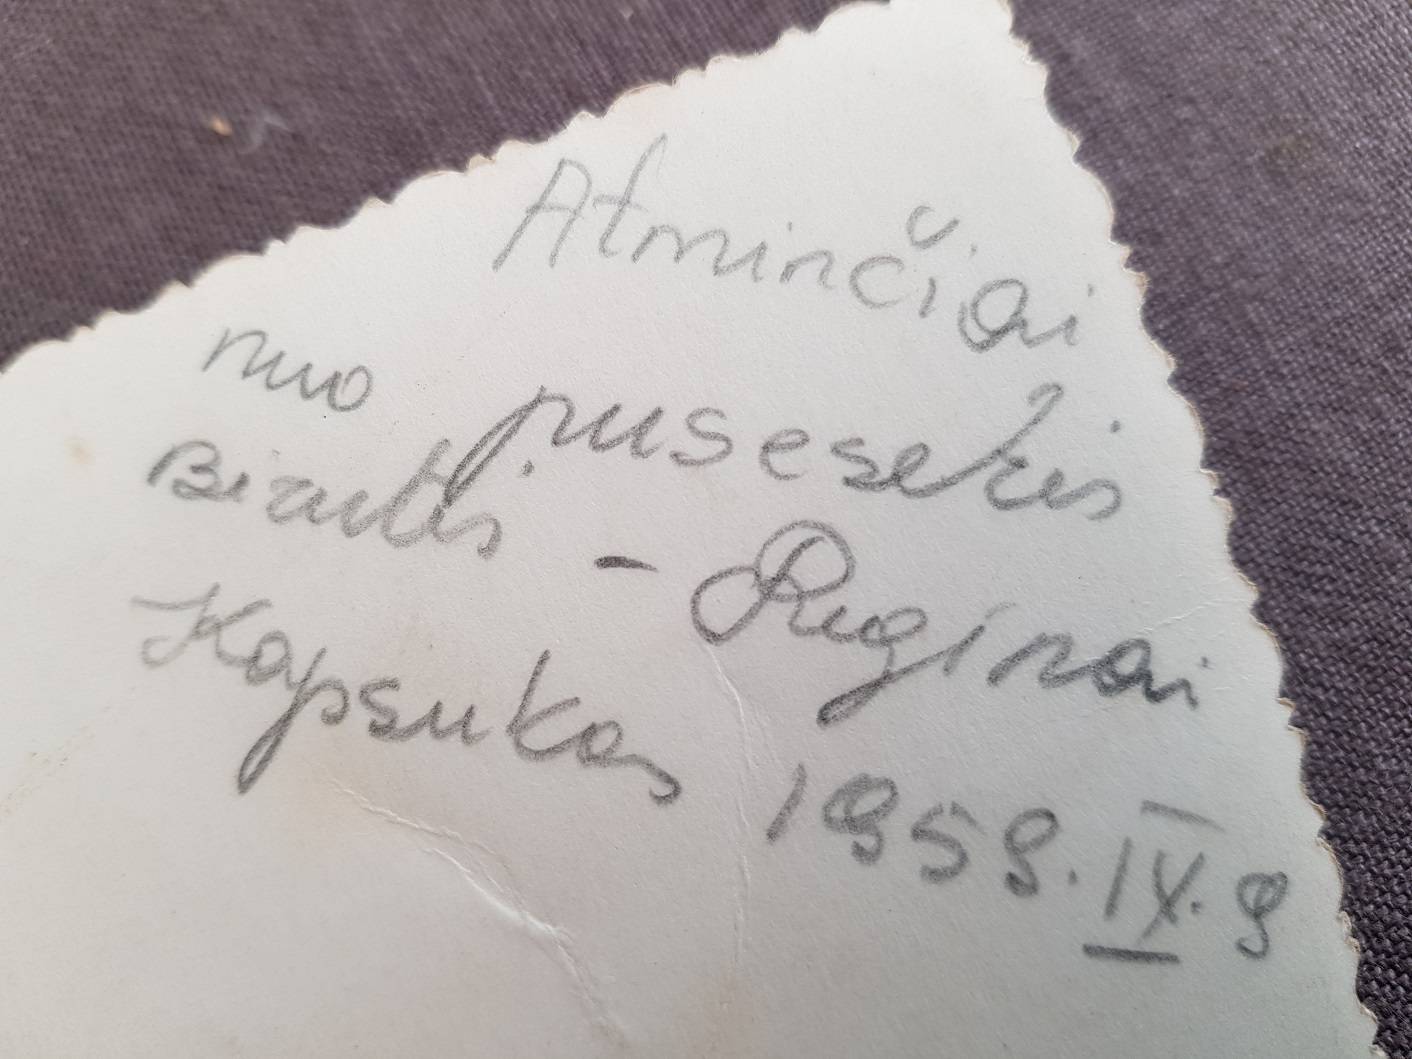 Atminčiai
nuo pusesers
Birutis - Reginai
Kapsukas 1959.IX.9